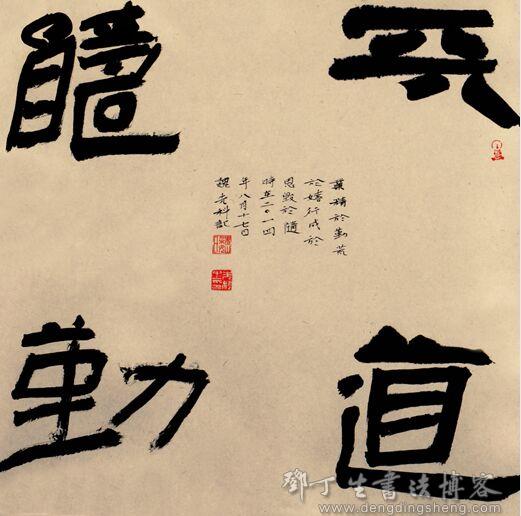 天道
醻勤
業精於勤荒
於嬉行成於
思毀於隨
時在二〇一四
年八月十七日
鄧丁生書法博客
www.dengdingsheng.com